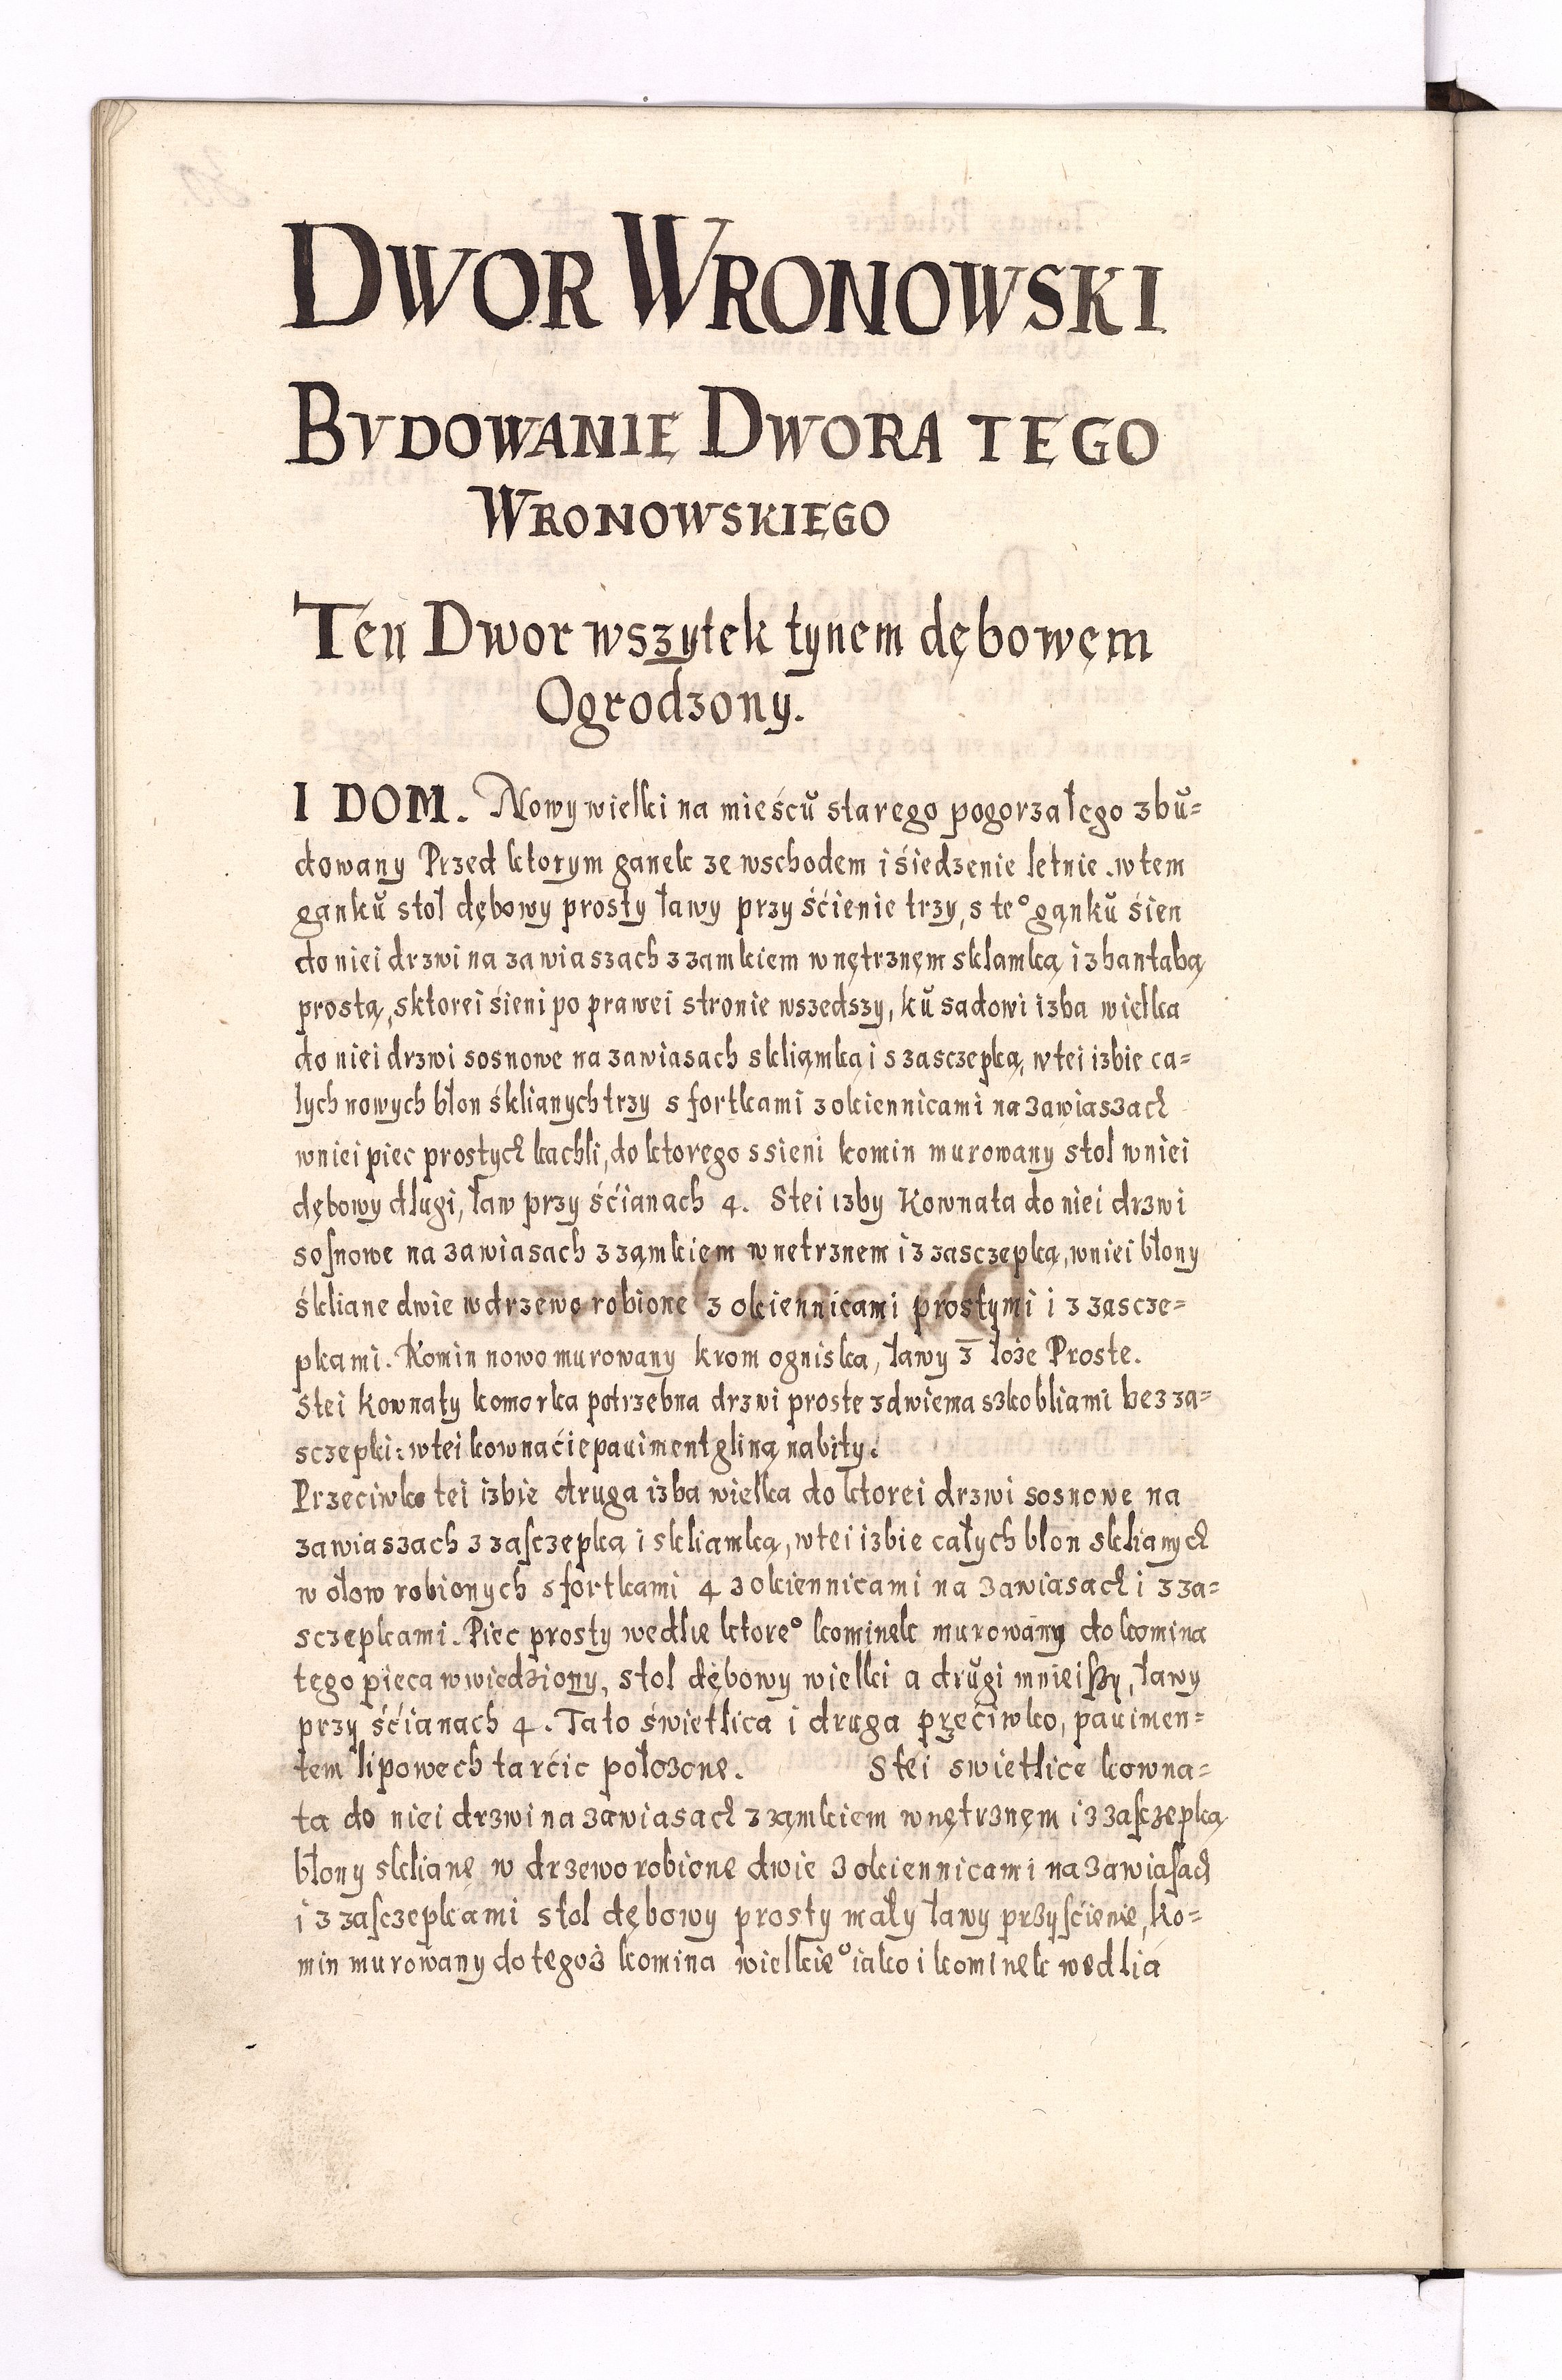 DWOR WRONOWSKI
BVDOWANIE DWORA TEGO
WRONOWSKIEGO
Ten Dwor wszytek tynem dębowęm
Ogrodzony.
I DOM. Nowy wielki na mieścŭ starego pogorzałego zbŭ=
dowany Przed ktorym ganek ze wschodem i śiedzenie letnie. w tem
gankŭ stol dębowy prosty ławy przy śćienie trzy, s te° gąnkŭ śien
do niei drzwi na zawiaszach z zamkiem wnętrznęm sklamką i z hantabą
prostą, sktorei śieni po prawei stronie wszedszy, kŭ sadowi izba wielka
do niei drzwi sosnowe na zawiasach skliąmką i s zasczepką, w tei izbie ca=
łych nowych błon śklianych trzy s fortkami z okiennicami na zawiaszach
wniei piec prostych kachli, do ktorego s sieni komin murowany stol wniei
dębowy dlugi, ław przy śćianach 4. Stei izby Kownata do niei drzwi
soſnowe na zawiasach z ząmkiem wnetrznem i z zasczepką, wniei błony
śkliane dwie wdrzewo robione z okiennicami prostymi i z zascze=
pkami. Komin nowo murowany krom ogniska, ławy 3 łoże Proste.
Stei Kownaty komorka potrzebna drzwi proste z dwiema szkobliami bez za=
sczepki: w tei kownaćie pauiment gliną nabity.
Przeciwko tei izbie druga izba wielka do ktorei drzwi sosnowe na
zawiaszach z zaſczepką i skliamką, w tei izbie całych błon sklianych
w ołow robionych s fortkami 4 z okiennicami na zawiasach i z za=
sczepkami. Piec prosty wedlie ktore° kominek murowany do komina
tego pieca wwiedziony, stol dębowy wielki a drŭgi mnieiſzy, ławy
przy śćianach 4. Tato świetlica i druga przećiwko, pauimen=
tem lipowech tarćic położone. Stei swietlice kowna=
ta do niei drzwi na zawiasach z ząmkiem wnętrznęm i z zaſczepką
błony skliane w drzewo robione dwie z okiennicami na zawiaſach
i z zaſczepkami stol dębowy prosty mały ławy przy ſćienie, ko=
min murowany do tegoż komina wielkie° iako i kominek wedlia